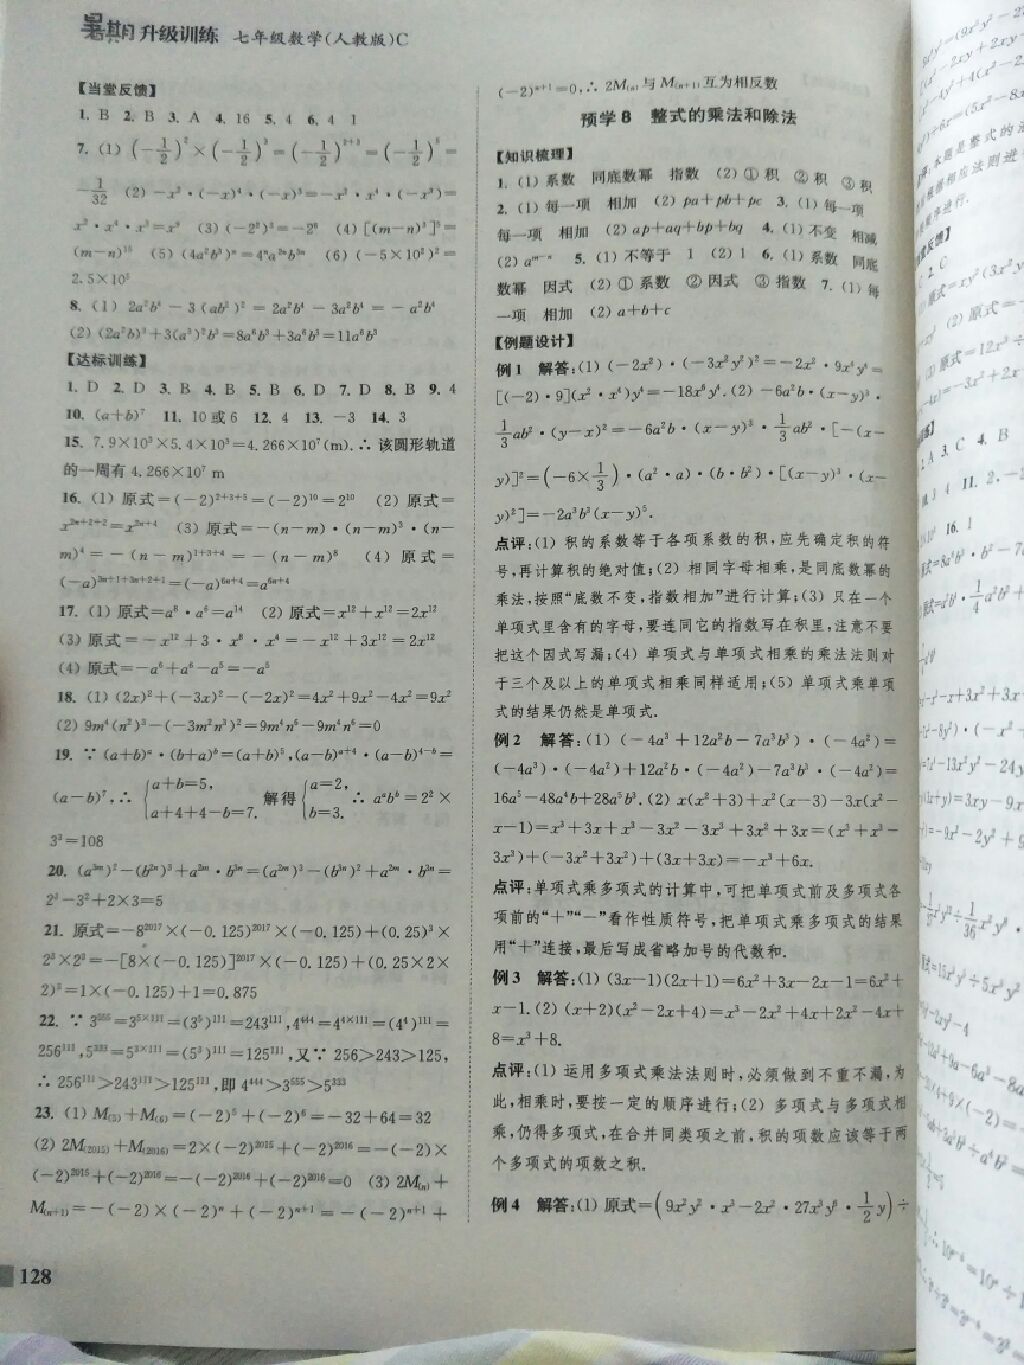 暑期升级训练 七年级数学(人教版)C
【当堂反馈】
1. B 2. B 3. A 4. 16 5. 4 6. 4 1
7. (1) (-1/2)²×(-1/2)³=(-1/2)²⁺³=(-1/2)⁵=
-1/32 (2) -x²·(-x)⁴·(-x)³=-x²·x⁴·(-x³)=
x²·x⁴·x³=x⁹ (3) (-2²)³=-2⁶ (4) [(m-n)³]⁵=
(m-n)¹⁵ (5) (4a²b³)ⁿ=4ⁿa²ⁿb³ⁿ (6) (-5×10²)²=
2.5×10⁵
8. (1) 2a²b⁴-3(ab²)²=2a²b⁴-3a²b⁴=-a²b⁴
(2) (2a²b)³+3(a³)²b³=8a⁶b³+3a⁶b³=11a⁶b³
【达标训练】
1. D 2. D 3. B 4. B 5. B 6. D 7. D 8. B 9. 4
10. (a+b)⁷ 11. 10或6 12. 4 13. -3 14. 3
15. 7.9×10³×5.4×10³=4.266×10⁷(m).∴ 该圆形轨道
的一周有 4.266×10⁷ m
16. (1) 原式=(-2)²⁺³⁺⁵=(-2)¹⁰=2¹⁰ (2) 原式=
x²ⁿ⁺²⁺²=x²ⁿ⁺⁴ (3) 原式=-(n-m)·(n-m)³·(n-
m)⁴=-(n-m)¹⁺³⁺⁴=-(n-m)⁸ (4) 原式=
(-a)³ⁿ⁺¹⁺³ⁿ⁺²⁺¹=(-a)⁶ⁿ⁺⁴=a⁶ⁿ⁺⁴
17. (1) 原式=a⁸·a⁶=a¹⁴ (2) 原式=x¹²+x¹²=2x¹²
(3) 原式=-x¹²+3·x⁸·x⁴=-x¹²+3x¹²=2x¹²
(4) 原式=-a⁶+a⁶-a⁵=-a⁵
18. (1) (2x)²+(-3x)²-(-2x)²=4x²+9x²-4x²=9x²
(2) 9m⁴(n²)³-(-3m²n³)²=9m⁴n⁶-9m⁴n⁶=0
19. ∵ (a+b)ᵃ·(b+a)ᵇ=(a+b)⁵,(a-b)ᵃ⁺⁴·(a-b)⁴⁻ᵇ=
(a-b)⁷,∴ {a+b=5, a+4+4-b=7. 解得{a=2, b=3. ∴ aᵃbᵇ=2²×
3³=108
20. (a³ᵐ)²-(b²ⁿ)³+a²ᵐ·b³ⁿ=(a²ᵐ)³-(b³ⁿ)²+a²ᵐ·b³ⁿ=
2³-3²+2×3=5
21. 原式=-8²⁰¹⁷×(-0.125)²⁰¹⁷×(-0.125)+(0.25)³×
2³×2³=-[8×(-0.125)]²⁰¹⁷×(-0.125)+(0.25×2×
2)³=1×(-0.125)+1=0.875
22. ∵ 3⁵⁵⁵=3⁵ˣ¹¹¹=(3⁵)¹¹¹=243¹¹¹,4⁴⁴⁴=4⁴ˣ¹¹¹=(4⁴)¹¹¹=
256¹¹¹,5³³³=5³ˣ¹¹¹=(5³)¹¹¹=125¹¹¹,又∵ 256>243>125,
∴ 256¹¹¹>243¹¹¹>125¹¹¹,即 4⁴⁴⁴>3⁵⁵⁵>5³³³
23. (1) M₍₅₎+M₍₆₎=(-2)⁵+(-2)⁶=-32+64=32
(2) 2M₍₂₀₁₅₎+M₍₂₀₁₆₎=2×(-2)²⁰¹⁵+(-2)²⁰¹⁶=-(-2)×
(-2)²⁰¹⁵+(-2)²⁰¹⁶=-(-2)²⁰¹⁶+(-2)²⁰¹⁶=0 (3) 2M₍ₙ₎+
M₍ₙ₊₁₎=-(-2)×(-2)ⁿ+(-2)ⁿ⁺¹=-(-2)ⁿ⁺¹+
128
(-2)ⁿ⁺¹=0,∴ 2M₍ₙ₎与M₍ₙ₊₁₎互为相反数
预学8 整式的乘法和除法
【知识梳理】
1. (1) 系数 同底数幂 指数 (2) ① 积 ② 积 ③ 积
2. (1) 每一项 相加 (2) pa+pb+pc 3. (1) 每一项
每一项 相加 (2) ap+aq+bp+bq 4. (1) 不变 相减
(2) aᵐ⁻ⁿ 5. (1) 不等于 1 (2) 1 6. (1) 系数 同底
数幂 因式 (2) ① 系数 ② 因式 ③ 指数 7. (1) 每
一项 相加 (2) a+b+c
【例题设计】
例1 解答:(1) (-2x²)·(-3x²y²)²=-2x²·9x⁴y⁴=
[(-2)·9](x²·x⁴)y⁴=-18x⁶y⁴.(2) -6a²b·(x-y)³·
1/3ab²·(y-x)²=-6a²b·(x-y)³·1/3ab²·[-(x-
y)]²=(-6×1/3)·(a²·a)·(b·b²)·[(x-y)³·(x-
y)²]=-2a³b³(x-y)⁵.
点评:(1) 积的系数等于各项系数的积,应先确定积的符
号,再计算积的绝对值;(2) 相同字母相乘,是同底数幂的
乘法,按照“底数不变,指数相加”进行计算;(3) 只在一个
单项式里含有的字母,要连同它的指数写在积里,注意不要
把这个因式写漏;(4) 单项式与单项式相乘的乘法法则对
于三个及以上的单项式相乘同样适用;(5) 单项式乘单项
式的结果仍然是单项式.
例2 解答:(1) (-4a³+12a²b-7a³b³)·(-4a²)=
(-4a³)·(-4a²)+12a²b·(-4a²)-7a³b³·(-4a²)=
16a⁵-48a⁴b+28a⁵b³.(2) x(x²+3)+x²(x-3)-3x(x²-
x-1)=x³+3x+x³-3x²-3x³+3x²+3x=(x³+x³-
3x³)+(-3x²+3x²)+(3x+3x)=-x³+6x.
点评:单项式乘多项式的计算中,可把单项式前及多项式各
项前的“+”“-”看作性质符号,把单项式乘多项式的结果
用“+”连接,最后写成省略加号的代数和.
例3 解答:(1) (3x-1)(2x+1)=6x²+3x-2x-1=6x²+
x-1.(2) (x+2)(x²-2x+4)=x³-2x²+4x+2x²-4x+
8=x³+8.
点评:(1) 运用多项式乘法法则时,必须做到不重不漏,为
此,相乘时,要按一定的顺序进行;(2) 多项式与多项式相
乘,仍得多项式,在合并同类项之前,积的项数应该等于两
个多项式的项数之积.
例4 解答:(1) 原式=(9x²y²·x³-2x²·27x³y³·1/2y)÷